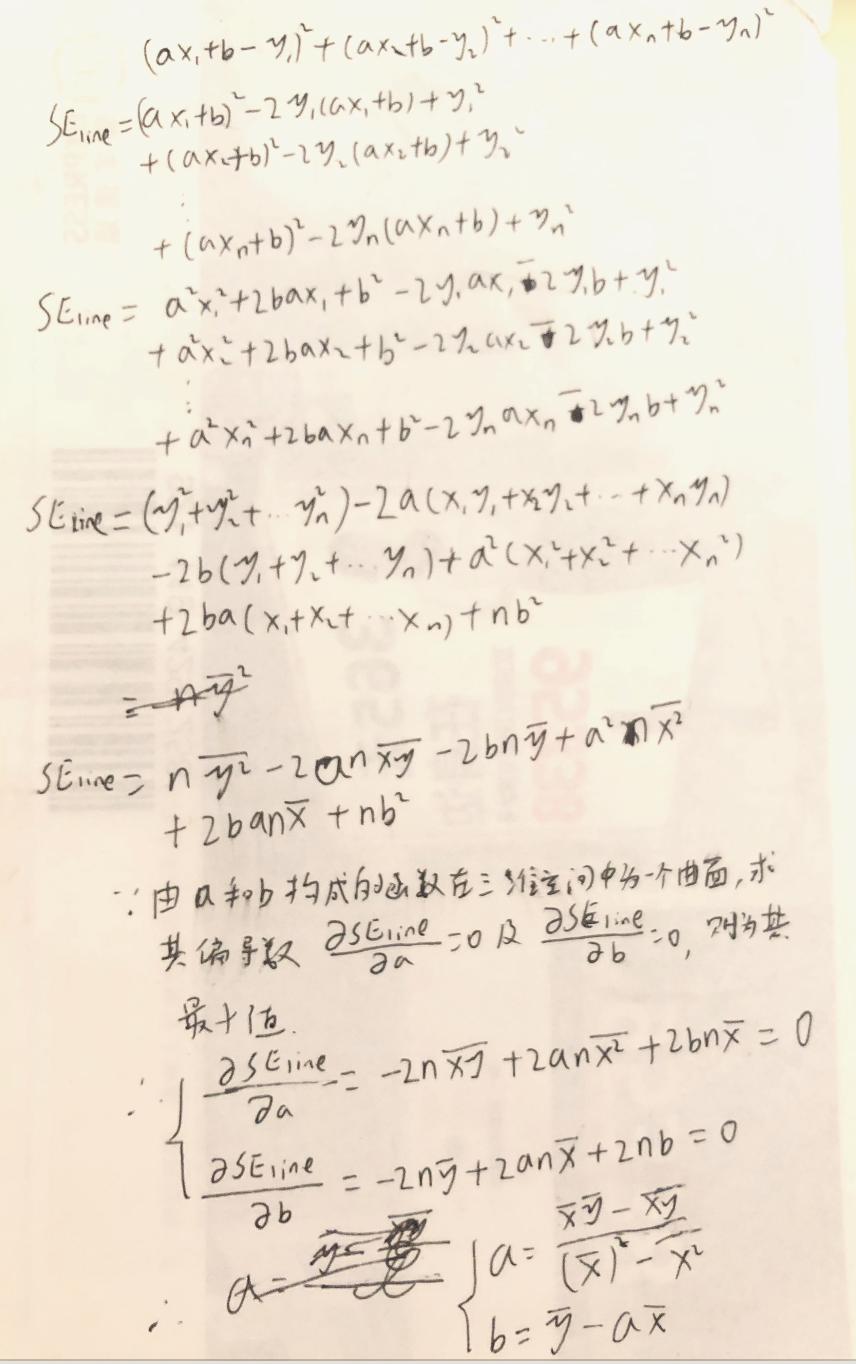 (ax₁+b-y₁)²+(ax₂+b-y₂)²+…+(axₙ+b-yₙ)²
SE_line=(ax₁+b)²-2y₁(ax₁+b)+y₁²
+(ax₂+b)²-2y₂(ax₂+b)+y₂²
⋮
+(axₙ+b)²-2yₙ(axₙ+b)+yₙ²
SE_line= a²x₁²+2bax₁+b²-2y₁ax₁-2y₁b+y₁²
+a²x₂²+2bax₂+b²-2y₂ax₂-2y₂b+y₂²
⋮
+a²xₙ²+2baxₙ+b²-2yₙaxₙ-2yₙb+yₙ²
SE_line=(y₁²+y₂²+…yₙ²)-2a(x₁y₁+x₂y₂+…+xₙyₙ)
-2b(y₁+y₂+…yₙ)+a²(x₁²+x₂²+…xₙ²)
+2ba(x₁+x₂+…xₙ)+nb²
=n\overline{y}²
SE_line= n\overline{y²}-2an\overline{xy}-2bn\overline{y}+a²n\overline{x²}
+2ban\overline{x}+nb²
∵由a和b构成的函数在三维空间中为一个曲面,求
其偏导数 ∂SE_line/∂a=0及∂SE_line/∂b=0,则为其
最小值.
∴{ ∂SE_line/∂a= -2n\overline{xy}+2an\overline{x²}+2bn\overline{x}=0
∂SE_line/∂b= -2n\overline{y}+2an\overline{x}+2nb=0
∴ a= { a= (\overline{x}\overline{y}-\overline{xy})/((\overline{x})²-\overline{x²})
b=\overline{y}-a\overline{x}